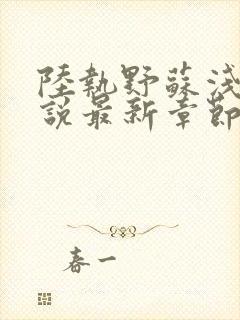 陸執野蘇淺
說最新章節
春一